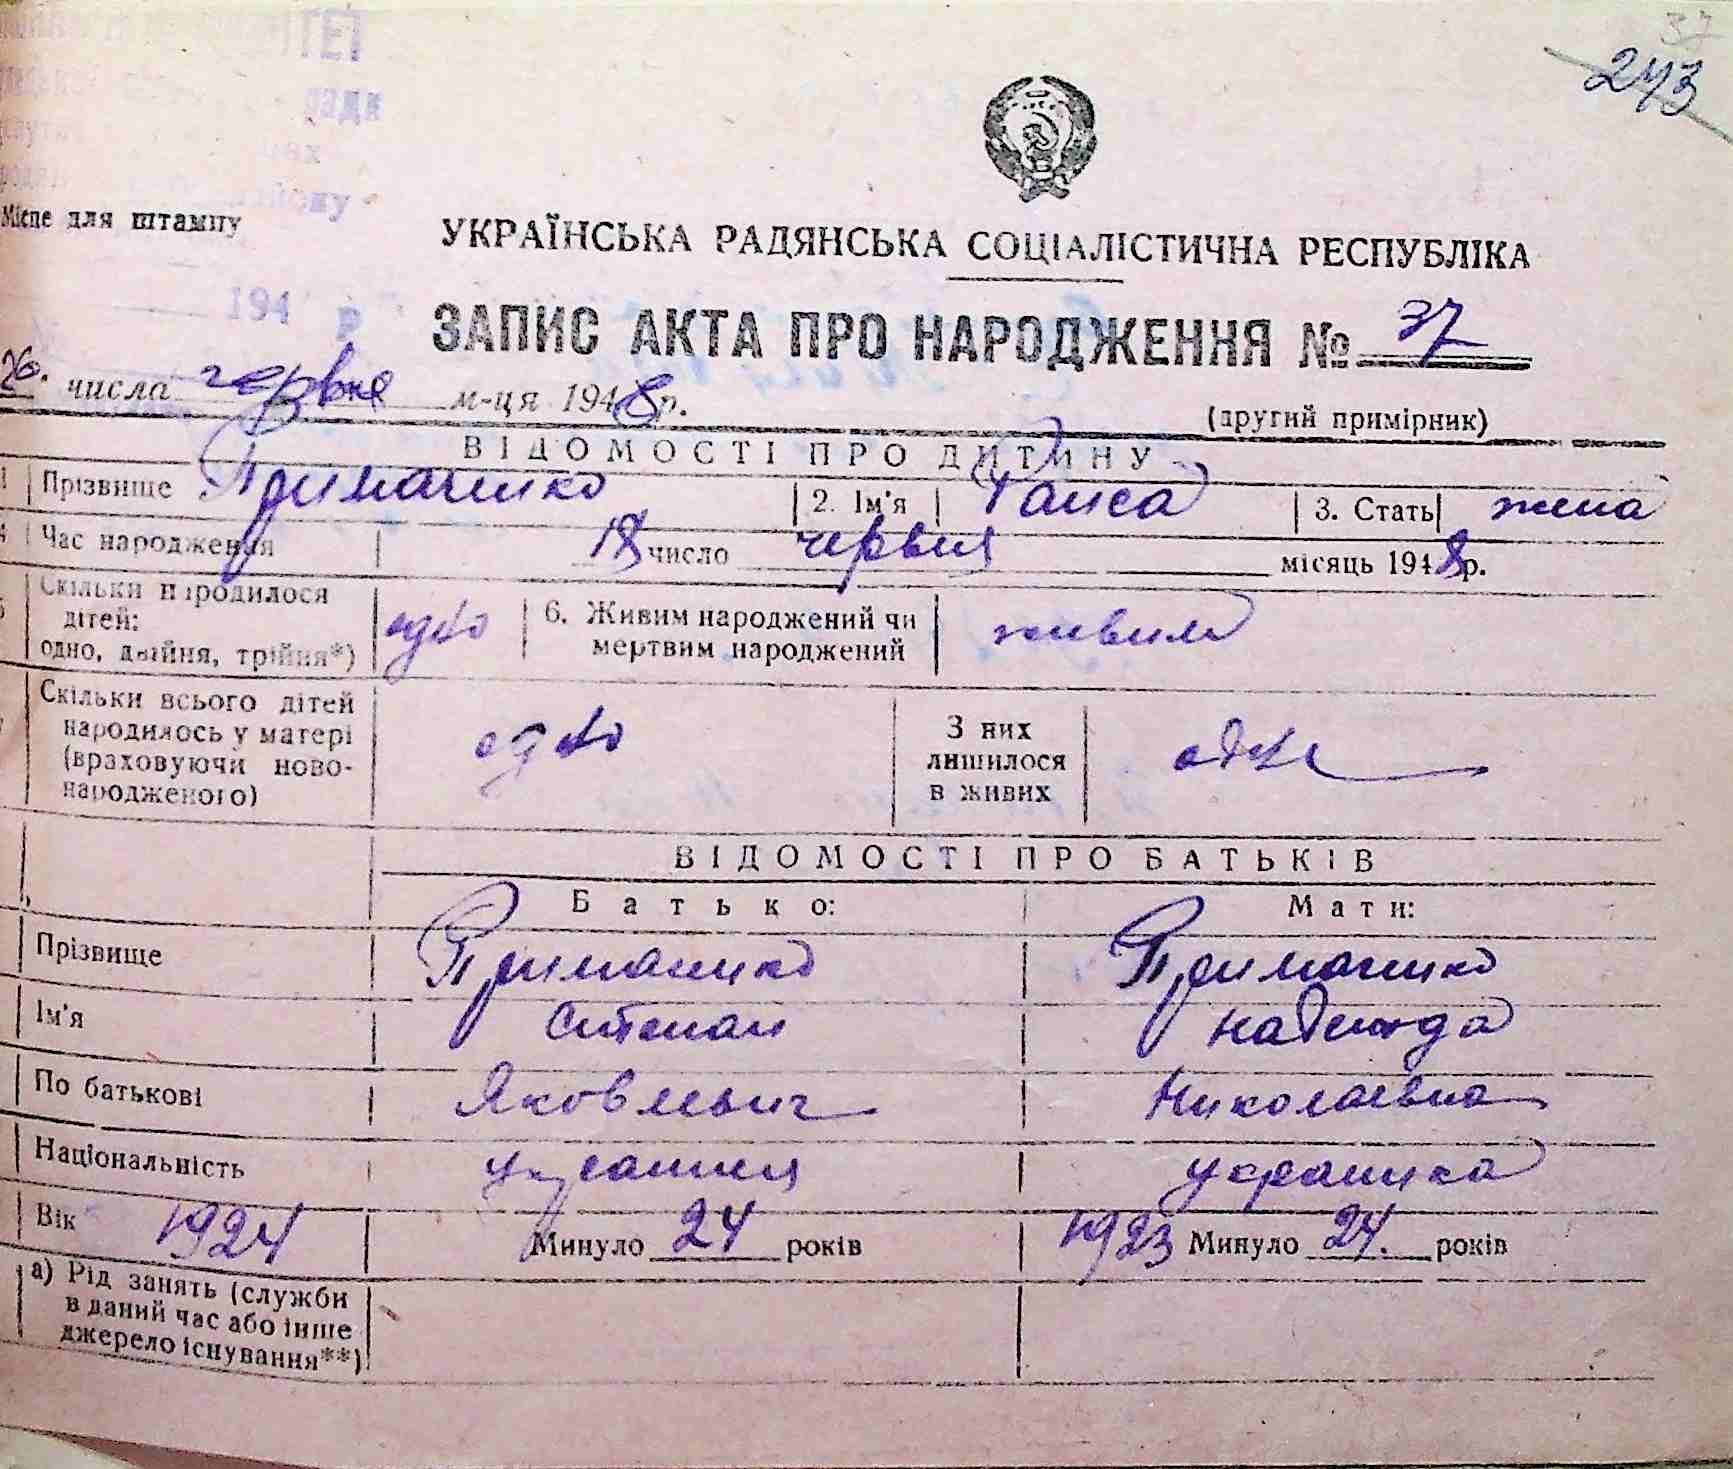 37
243
ГЕТ
ради
району
Місце для штампу
УКРАЇНСЬКА РАДЯНСЬКА СОЦІАЛІСТИЧНА РЕСПУБЛІКА
194 р
ЗАПИС АКТА ПРО НАРОДЖЕННЯ № 37
26. числа червня м-ця 1948 р.
(другий примірник)
ВІДОМОСТІ ПРО ДИТИНУ
1 Прізвище Примаченко 2. Ім'я Раиса 3. Стать жена
4 Час народження 18 число червня місяць 1948 р.
Скільки народилося дітей: одно, двійня, трійня*) одно 6. Живим народжений чи мертвим народжений живим
Скільки всього дітей народилось у матері (враховуючи ново-народженого) одно З них лишилося в живих одне
ВІДОМОСТІ ПРО БАТЬКІВ
Батько: Мати:
Прізвище Примаченко Примаченко
Ім'я Степан Надежда
По батькові Яковлевич Николаевна
Національність украинка
Вік 1924 Минуло 24 років 1923 Минуло 24. років
а) Рід занять (служби
в даний час або інше
джерело існування**)